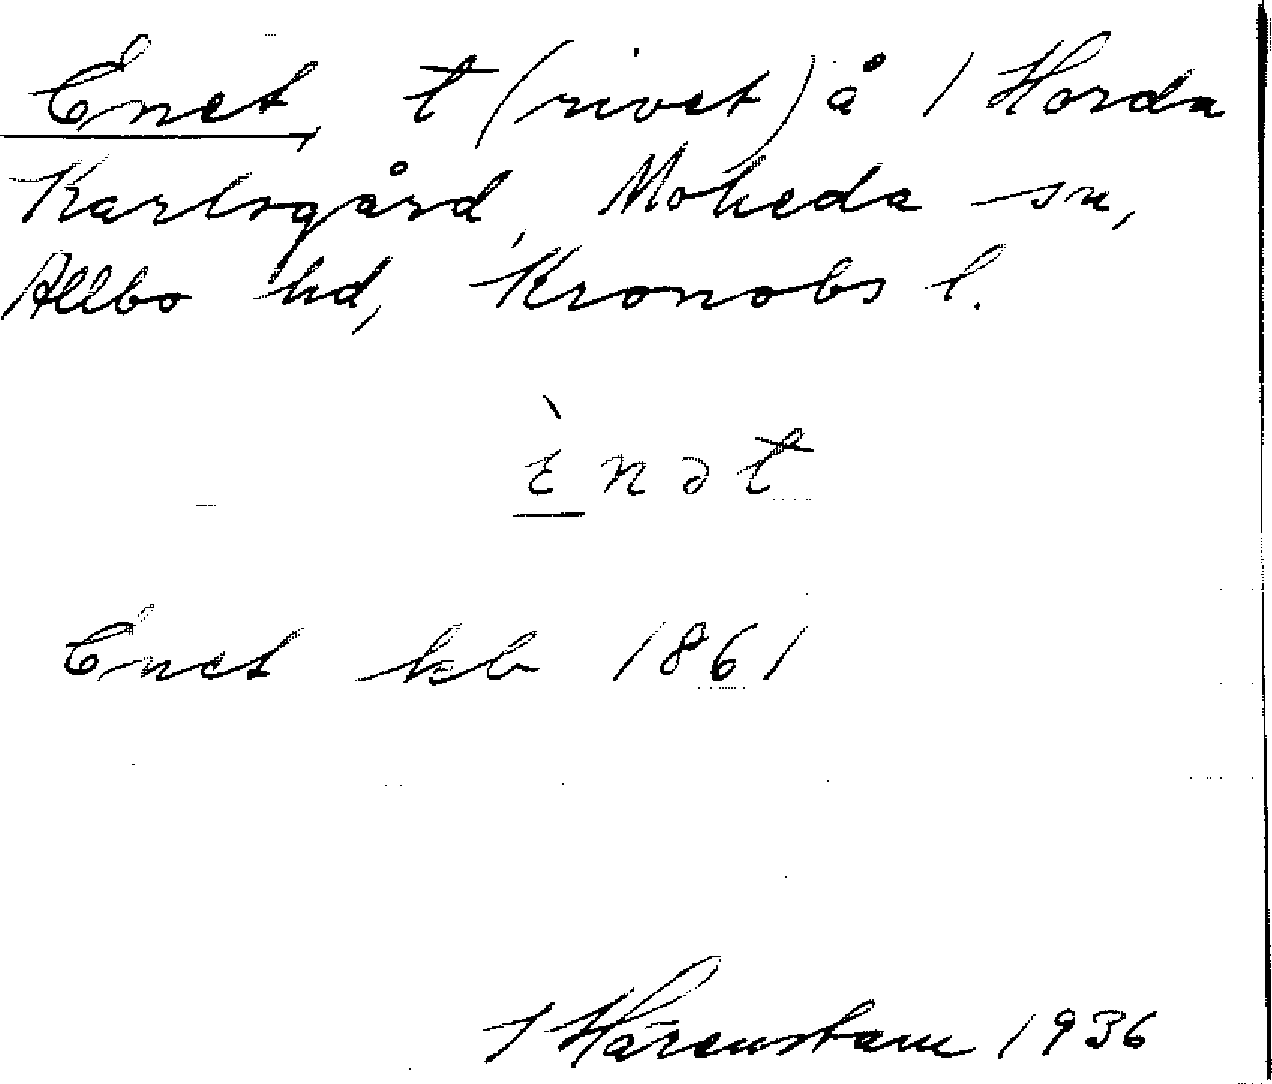 Enet, t (rivet) å 1 Horda
Karlsgård, Moheda sn,
Allbo hd, Kronobs l.
ὲnət
Enet kb 1861
J Härenstam 1936